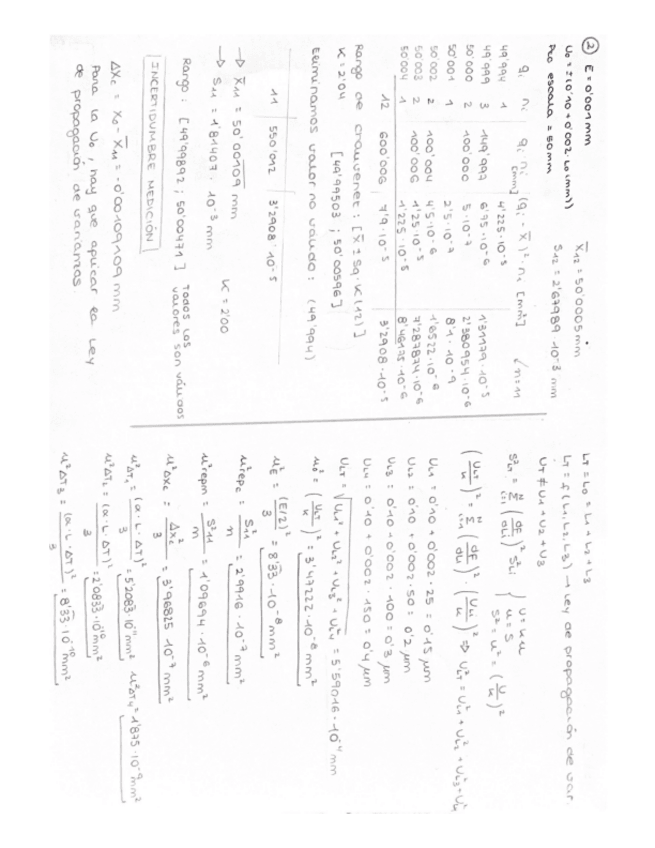 ② E = 0'001 mm
U₀ = ±(0'10 + 0'002·L₀ (mm))
Pto escala = 50 mm
X̄₁₂ = 50'0005 mm
S₁₂ = 2'67989·10⁻³ mm
qᵢ nᵢ qᵢ nᵢ [mm] (qᵢ - X̄)²·nᵢ [mm²] n=11
49'994 1 4'225·10⁻⁵
49'999 3 149'997 6'75·10⁻⁶ 1'31179·10⁻⁵
50'000 2 100'000 5·10⁻⁷ 2'380954·10⁻⁶
50'001 1 2'5·10⁻⁷ 8'1·10⁻⁹
50'002 2 100'004 4'5·10⁻⁶ 1'6522·10⁻⁶
50'003 2 100'006 1'25·10⁻⁵ 7'287874·10⁻⁶
50'004 1 1'225·10⁻⁵ 8'46175·10⁻⁶
12 600'006 7'9·10⁻⁵ 3'2908·10⁻⁵
Rango de crauvenet: [X̄ ± Sq·K(12)]
K = 2'04 [49'99503 ; 50'00596]
Eliminamos valor no válido: (49'994)
11 550'012 3'2908·10⁻⁵
→ X̄₁₁ = 50'00109 mm
→ S₁₁ = 1'81407·10⁻³ mm K = 2'00
Rango: [49'99892 ; 50'00471] Todos los valores son válidos
INCERTIDUMBRE MEDICIÓN
ΔXc = X₀ - X̄₁₁ = -0'00109109 mm
Para la U₀, hay que aplicar la Ley
de propagación de varianzas
LT = L₀ = L₁ + L₂ + L₃
LT = f(L₁, L₂, L₃) → Ley de propagación de var.
UT ≠ U₁ + U₂ + U₃
S²LT = Σ (dF/dLi)² S²Li { U = k u
u = S
S² = u² = (U/k)²
(ULT/k)² = Σ (dF/dLi)²·(ULi/k)² ⇒ U²LT = U²L₁ + U²L₂ + U²L₃ + U²L₄
UL₁ = 0'10 + 0'002·25 = 0'15 μm
UL₂ = 0'10 + 0'002·50 = 0'2 μm
UL₃ = 0'10 + 0'002·100 = 0'3 μm
UL₄ = 0'10 + 0'002·150 = 0'4 μm
ULT = √(UL₁² + UL₂² + UL₃² + UL₄²) = 5'59016·10⁻⁴ mm
u₀² = (ULT/k)² = 3'47222·10⁻⁸ mm²
u²E = (E/2)²/3 = 8'33·10⁻⁸ mm²
u²repc = S²₁₁/n = 2'9916·10⁻⁷ mm²
u²repm = S²₁₁/n = 1'09694·10⁻⁶ mm²
u²ΔXc = ΔXc²/3 = 3'96825·10⁻⁷ mm²
u²ΔT₁ = (α·L·ΔT)²/3 = 5'2083·10⁻¹¹ mm² u²ΔT₄ = 1'875·10⁻⁹ mm²
u²ΔT₂ = (α·L·ΔT)²/3 = 2'0833·10⁻¹⁰ mm²
u²ΔT₃ = (α·L·ΔT)²/3 = 8'33·10⁻¹⁰ mm²